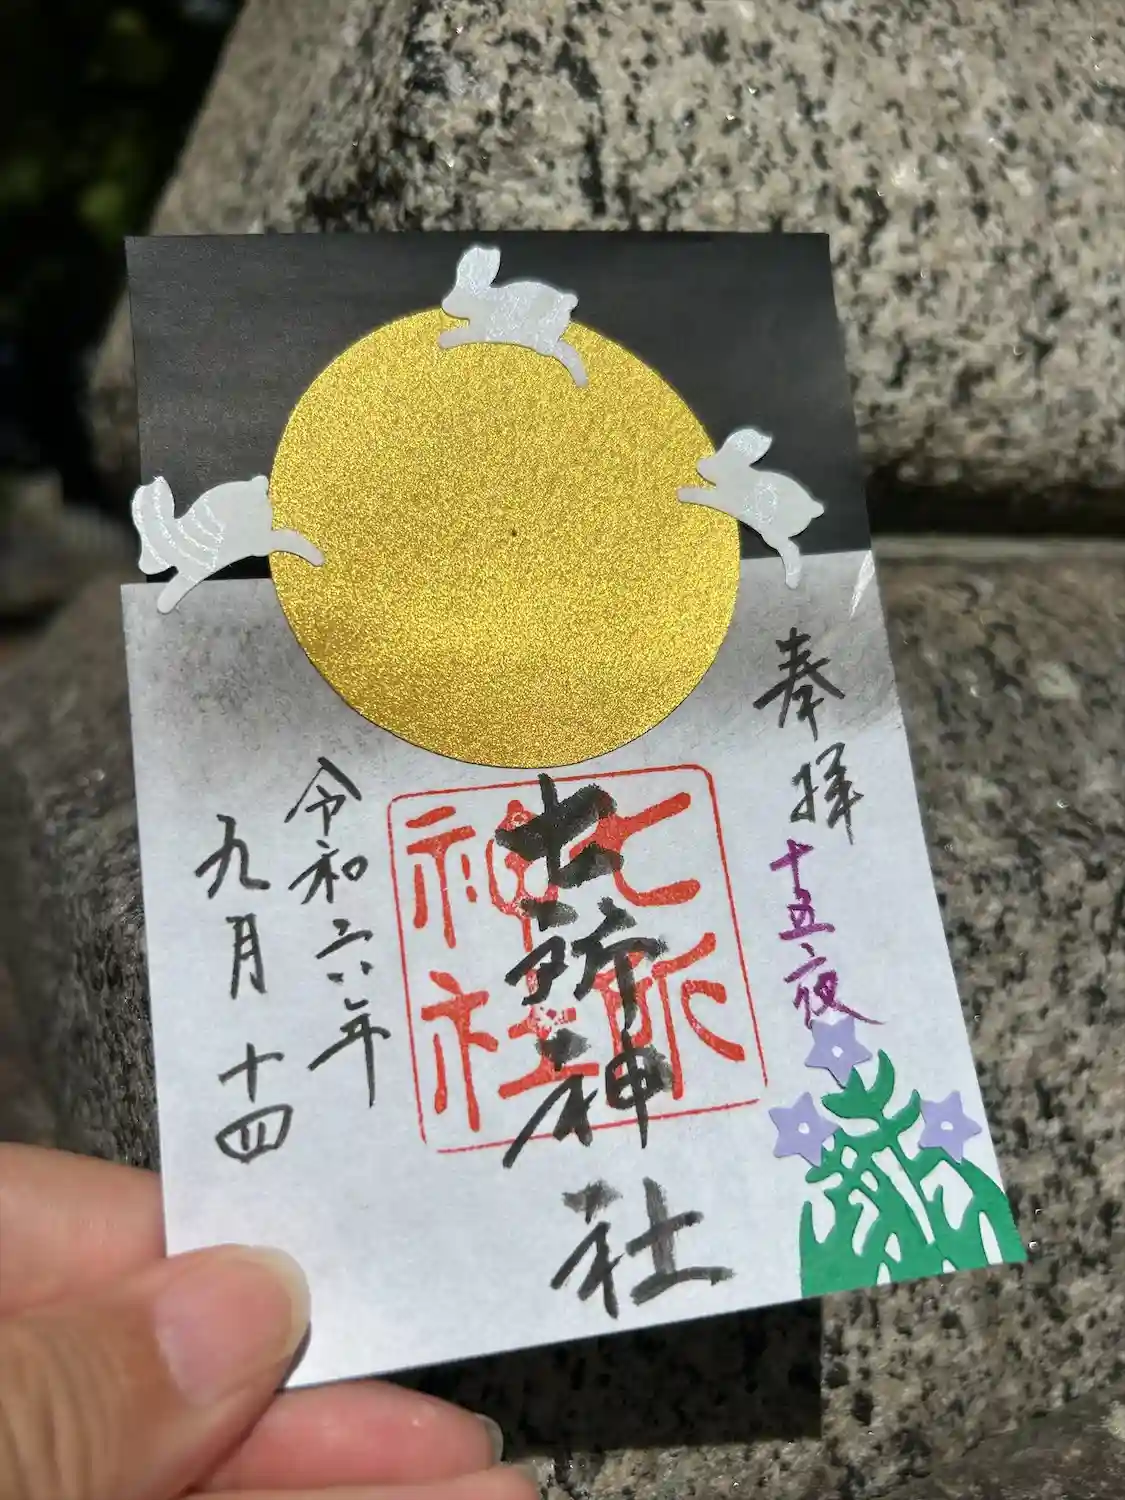 奉拝
十五夜
七所神社
七所
神社
令和六年
九月十四